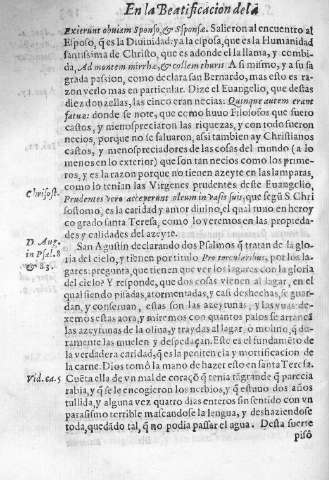 En la Beatificacion de la
Exierunt obuiam Sponso, & Sponsæ. Salieron al encuentro al
Esposo, q̃ es la Diuinidad: ya la esposa, que es la Humanidad
santissima de Christo, que es adonde el la llama, y combi-
da, Ad montem mirrhæ, & collem thuris. A si mismo, y a su sa
grada passion, como declara san Bernardo, mas esto es ra-
zon verlo mas en particular. Dize el Euangelio, que destas
diez donzellas, las cinco eran necias: Quinque autem erant
fatuæ: donde se note, que como huuo Filosofos que fuero
castos, y menospreciaron las riquezas, y con todo fueron
necios, porque no se saluaron, assi tambien ay Christianos
castos, y menospreciadores de las cosas del mundo (a lo
menos en lo exterior) que son tan necios como los prime-
ros, y es la razon porque no tienen azeyte en las lamparas,
como lo tenian las Virgenes prudentes deste Euangelio,
Prudentes vero acceperunt oleum in vasis suis, que segũ S. Chri
Chrisost.
sostomo, es la caridad y amor diuino, el qual tuuo en heroy
co grado santa Teresa, como lo veremos en las propieda-
des y calidades del azeyte.
D. Aug.
in Psal. 8
& 83.
San Agustin declarando dos Psalmos q̃ tratan de la glo-
ria del cielo, y tienen por titulo Pro torcularibus, por los la-
gares: pregunta, que tienen que ver los lagares con la gloria
del cielo? Y responde, que dos cosas vienen al lagar, en el
qual siendo pisadas, atormentadas, y casi deshechas, se guar-
dan, y conseruan, estas son las azeytunas, y las vuas: de-
xemos estas aora, y miremos con quantos palos se arrancã
las azeytunas de la oliua, y traydas al lagar, o molino, q̃ du-
ramente las muelen y despedaçan. Este es el fundamẽto de
la verdadera caridad, q̃ es la penitencia y mortificacion de
la carne. Dios tomò la mano de hazer esto en santa Teresa.
Vid. ca. 5
Cuẽta ella de vn mal de coraçõ q̃ tenia tã grande q̃ parecia
rabia, y q̃ se le encogieron los neruios, y q̃ estuuo dos años
tullida, y alguna vez quatro dias enteros sin sentido con vn
parasismo terrible mascandose la lengua, y deshaziendose
toda, quedãdo tal, q̃ no podia passar el agua. Desta suerte
pisò